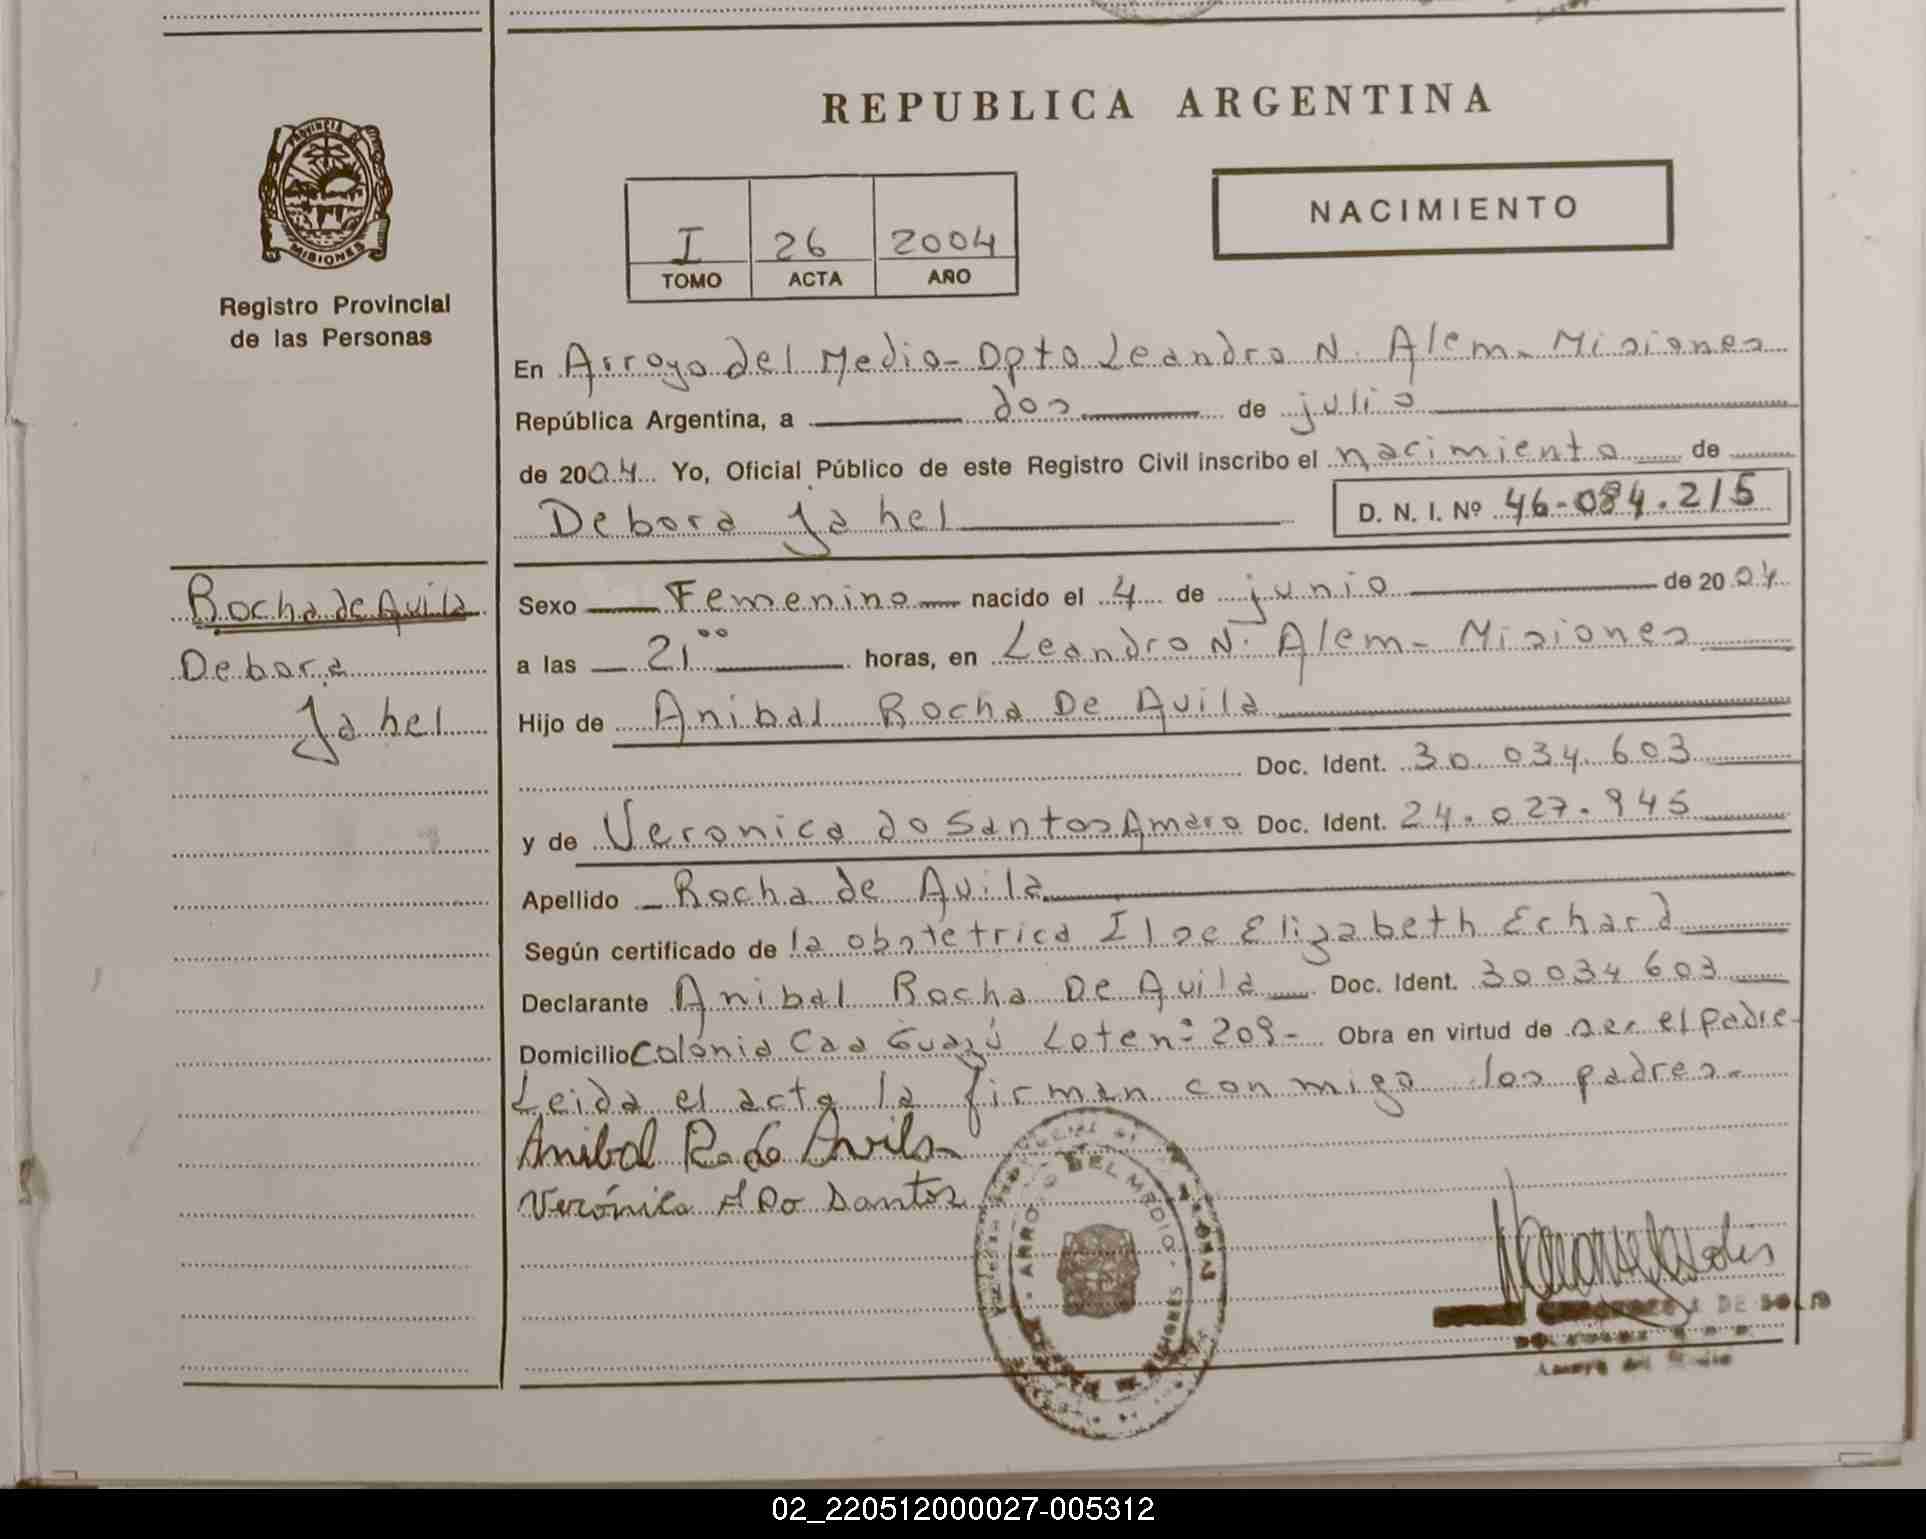 REPUBLICA ARGENTINA
PROVINCIA DE
MISIONES
Registro Provincial
de las Personas
I 26 2004
TOMO ACTA AÑO
NACIMIENTO
En Arroyo del Medio - Dpto Leandro N. Alem - Misiones
República Argentina, a dos de julio
de 2004 Yo, Oficial Público de este Registro Civil inscribo el nacimiento de
Debora Jahel D. N. I. Nº 46-084.215
Rocha de Avila
Debora
Jahel
Sexo Femenino nacido el 4 de junio de 2004
a las 21°° horas, en Leandro N. Alem - Misiones
Hijo de Anibal Rocha De Avila
Doc. Ident. 30 034 603
y de Veronica do Santos Amaro Doc. Ident. 24.027.945
Apellido Rocha de Avila
Según certificado de la obstetrica Ilse Elizabeth Echard
Declarante Anibal Rocha De Avila Doc. Ident. 30 034 603
Domicilio Colonia Caa Guazú Lote nº 209 - Obra en virtud de ser el padre -
Leida el acta la firman con migo los padres -
Anibal R. de Avila
Verónica A Do Santos
ARROYO DEL MEDIO - MISIONES
DE SOLIS
Arroyo del Medio
02_220512000027-005312